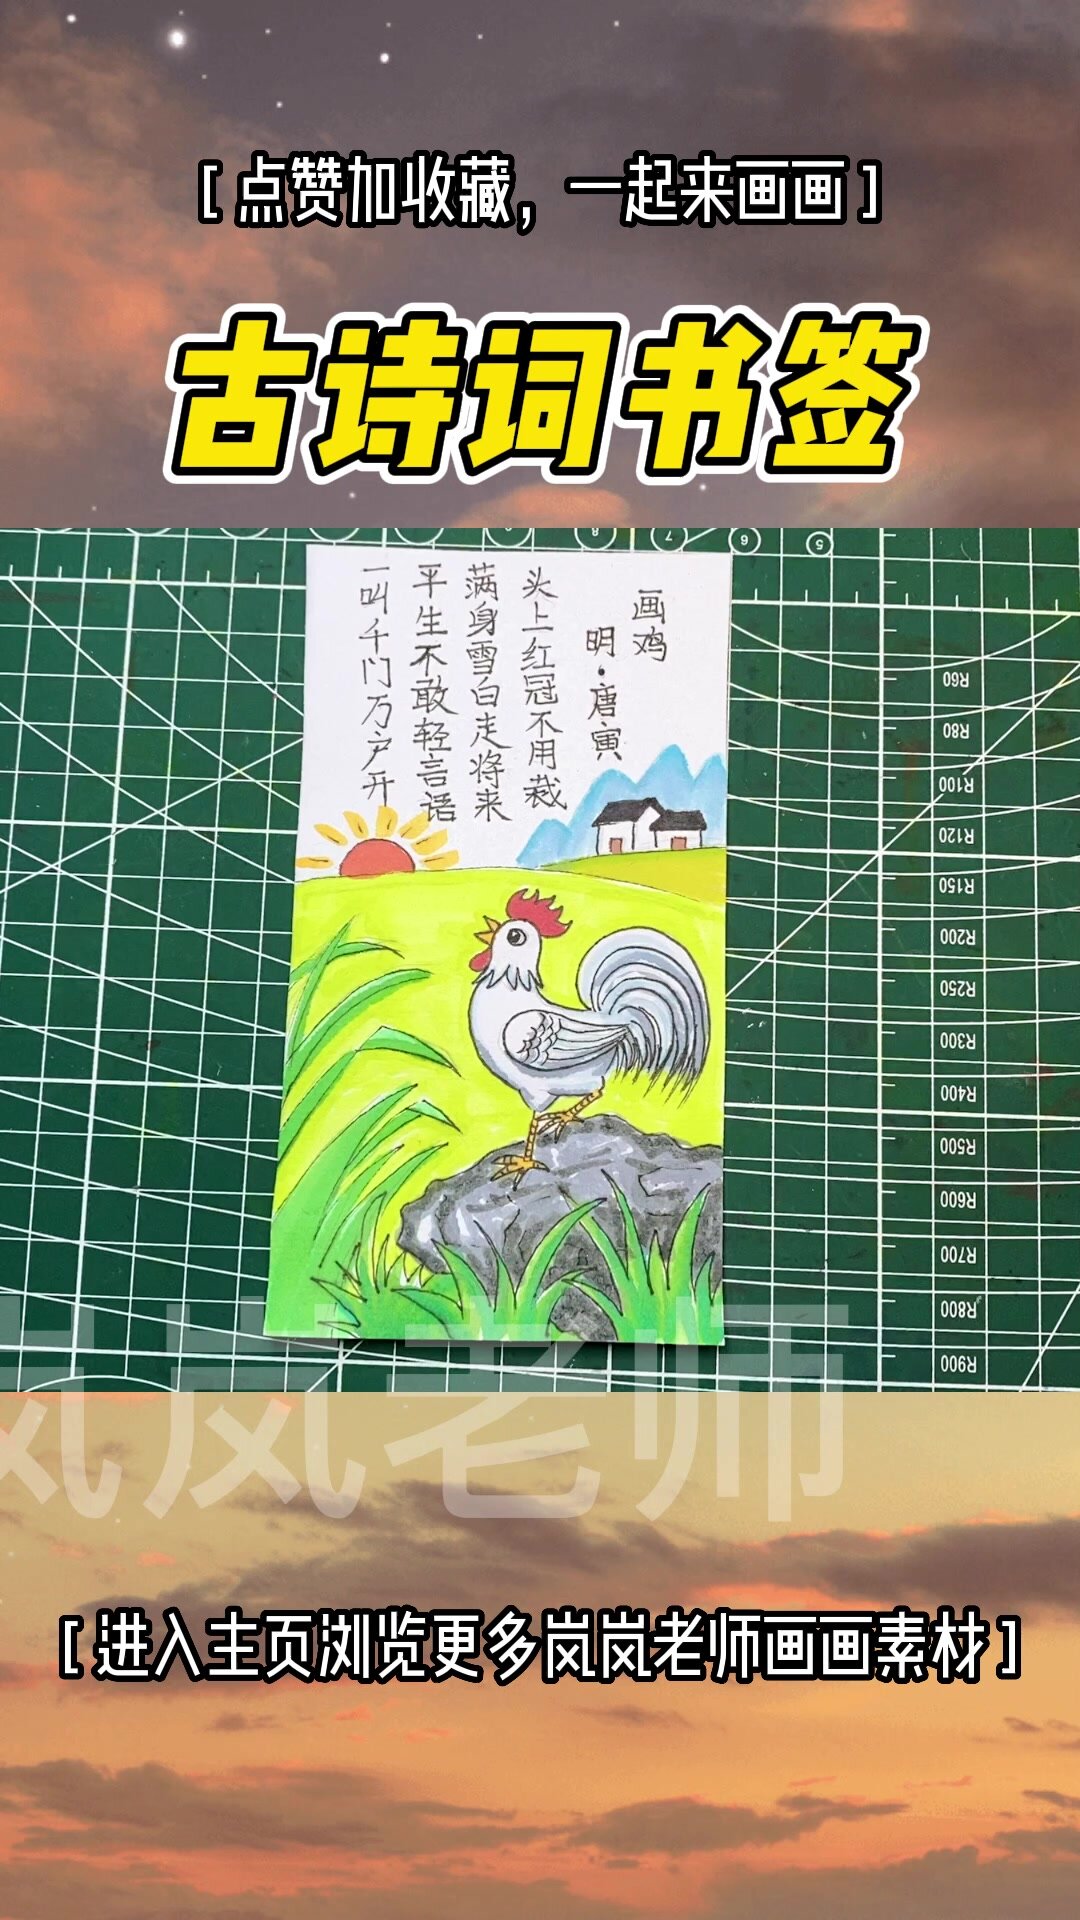 [点赞加收藏，一起来画画]
古诗词书签
画鸡
明·唐寅
头上红冠不用裁
满身雪白走将来
平生不敢轻言语
一叫千门万户开
8
7
6
5
R60
R80
R100
R120
R150
R200
R250
R300
R400
R500
R600
R700
R800
R900
岚岚老师
[进入主页浏览更多岚岚老师画画素材]